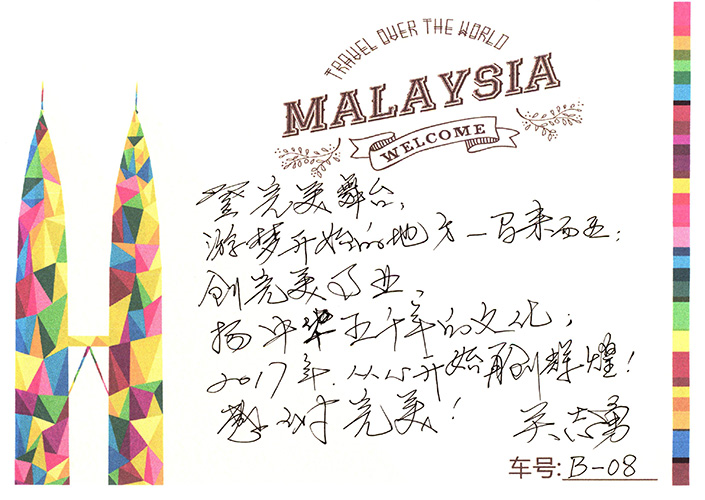 TRAVEL OVER THE WORLD
MALAYSIA
WELCOME
登完美舞台,
游梦开始的地方—马来西亚;
创完美事业,
扬中华五千年的文化;
2017年.从心开始再创辉煌!
感谢完美!
关志勇
车号: B-08